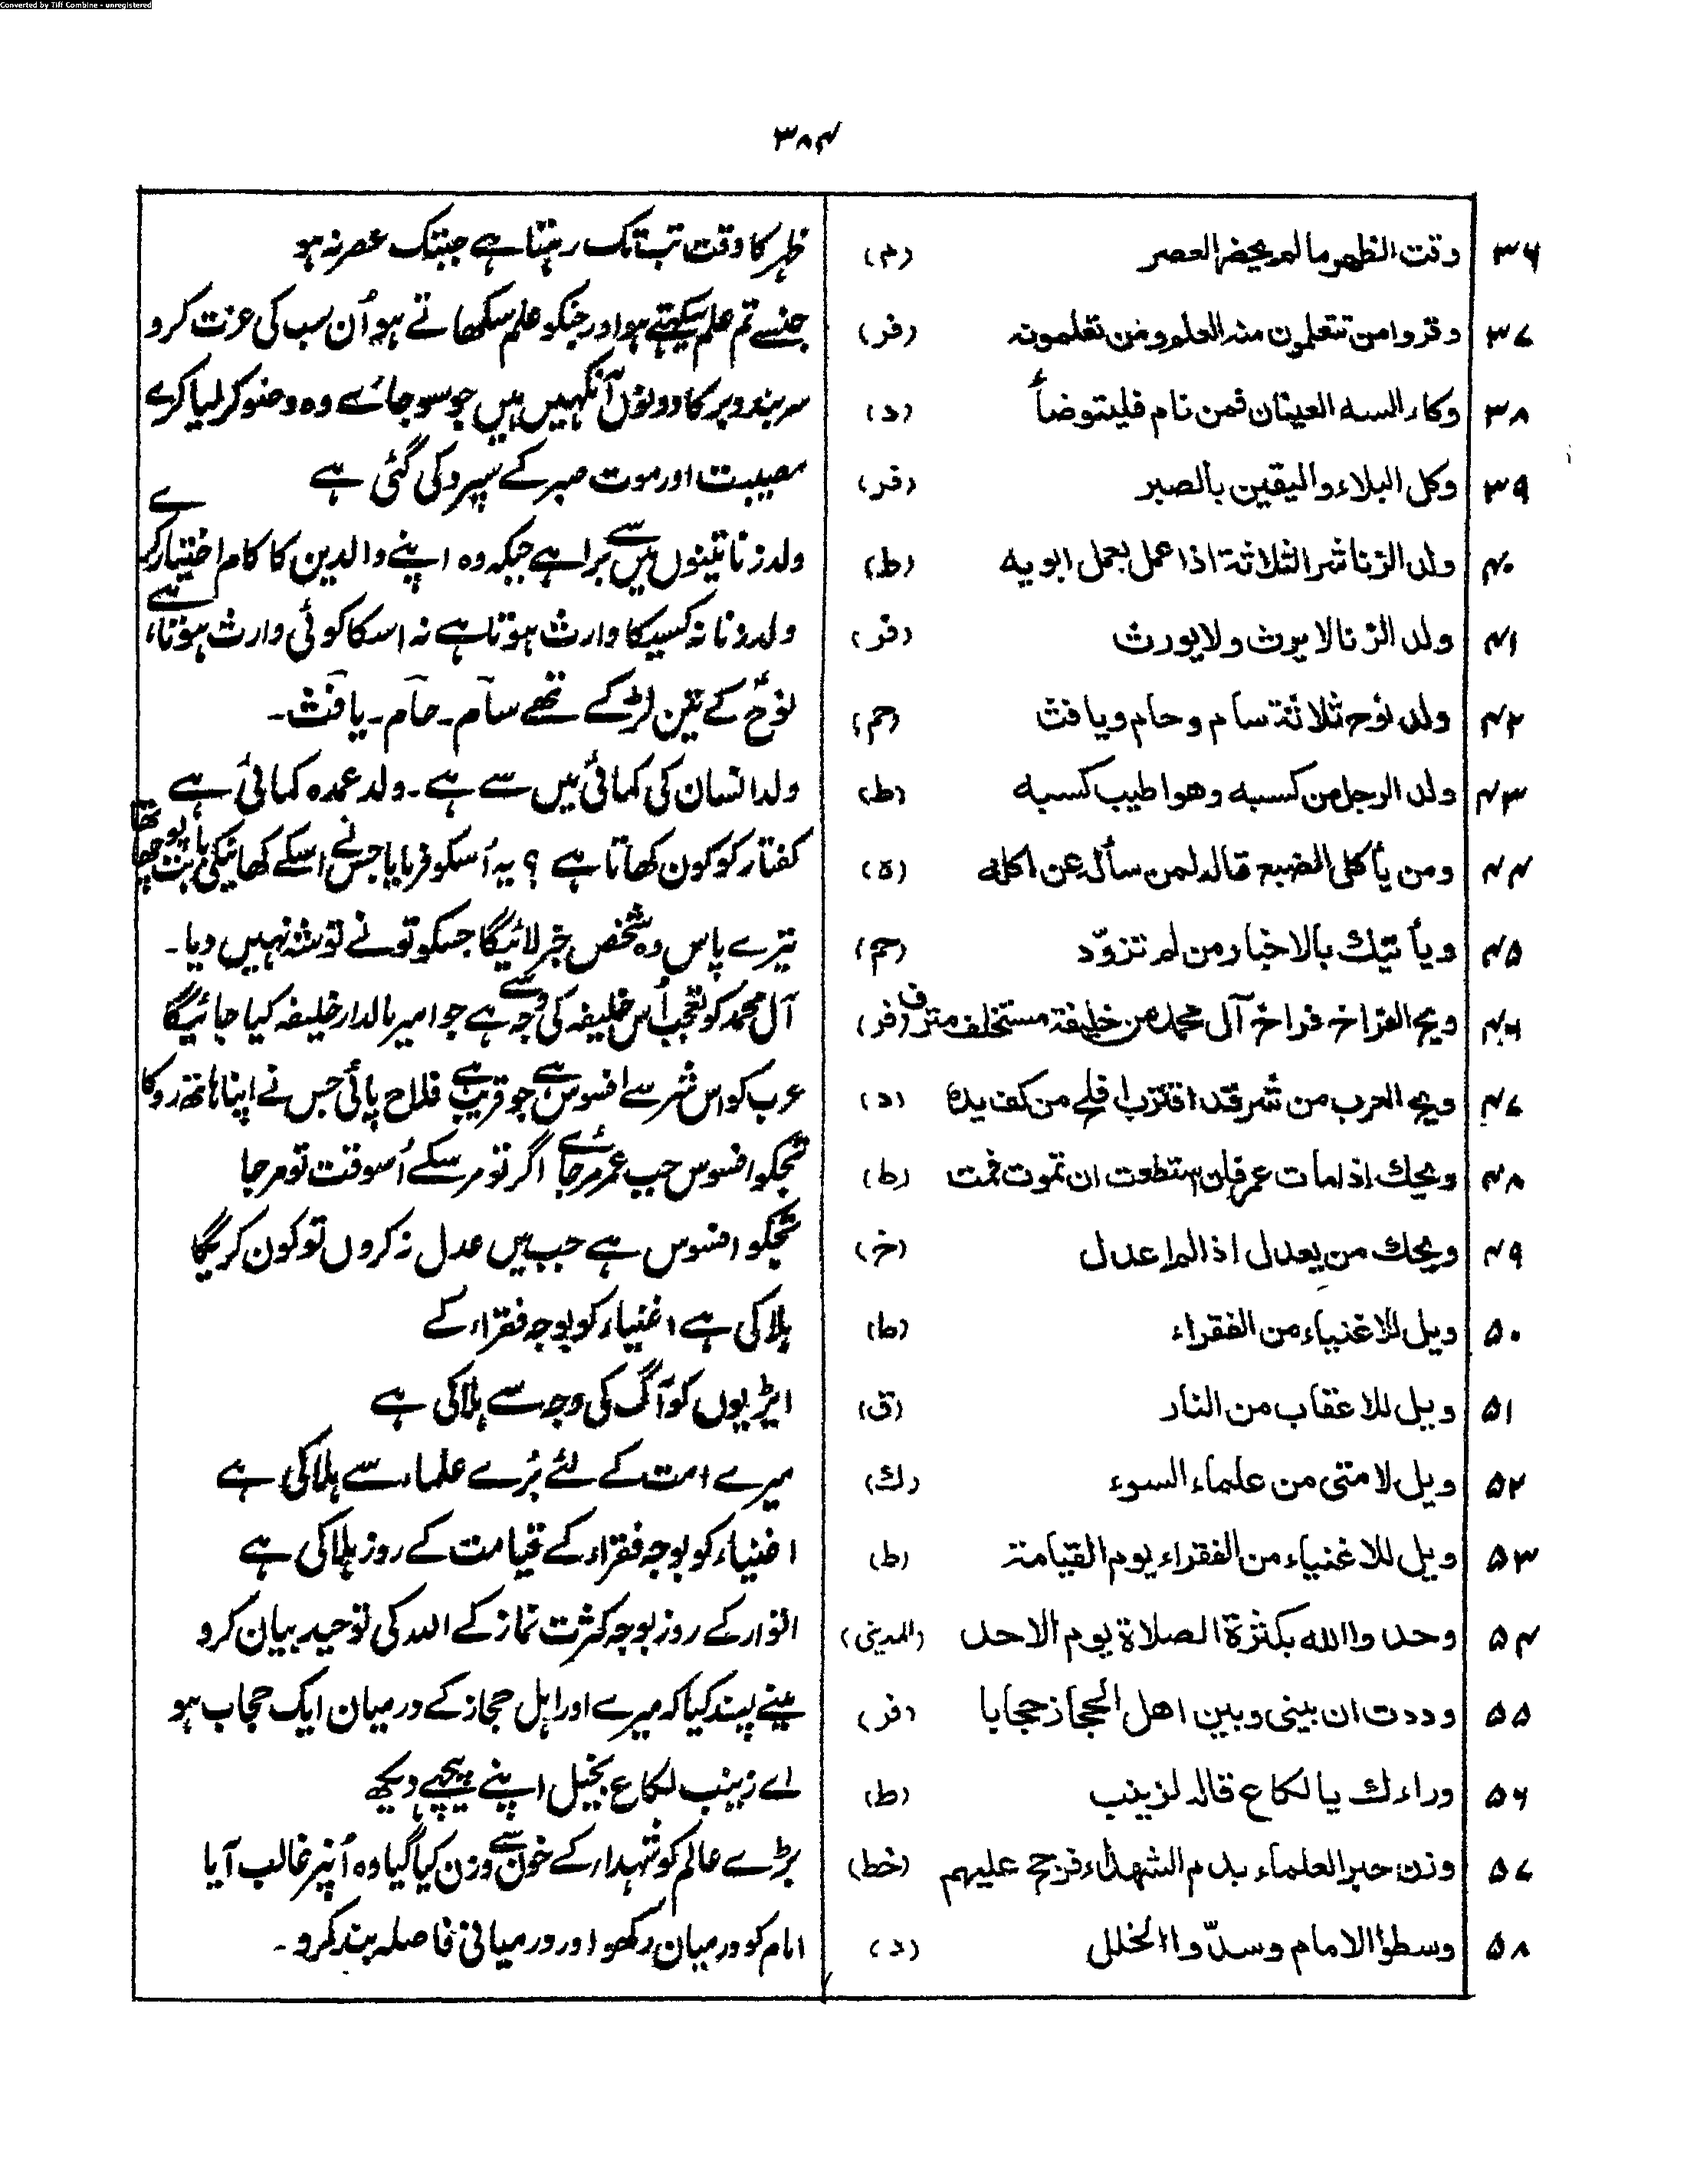 Converted by Tiff Combine - unregistered
۳۸۴
۳۶ وقت الظهر ما لم يحضر العصر (م) ظہر کا وقت تب تک رہتا ہے جبتک عصر نہ ہو
۳۷ وقروا من تتعلمون منه العلم ومن تعلمونه (فر) جنسے تم علم سیکھتے ہو اور جنکو علم سکھاتے ہو اُن سب کی عزت کرو
۳۸ وكاء السه العينان فمن نام فليتوضأ (د) سربند دوبر کا دونوں آنکہیں ہیں جو سو جائے وہ وضو کر لیا کرے
۳۹ وكل البلاء واليقين بالصبر (فر) مصیبت اور موت صبر کے سپرد کی گئی ہے
۴۰ ولد الزنا شر الثلاثة اذا عمل بعمل ابويه (ط) ولد زنا تینوں میں سے برا ہے جبکہ وہ اپنے والدین کا کام اختیار کرے
۴۱ ولد الزنا لا يرث ولا يورث (فر) ولد زنا نہ کسیکا وارث ہوتا ہے نہ اسکا کوئی وارث ہوتا ہے،
۴۲ ولد نوح ثلاثة سام وحام ويافث (حم) نوحؑ کے تین لڑکے تھے سام۔ حام۔ یافث۔
۴۳ ولد الرجل من كسبه وهو اطيب كسبه (ط) ولد انسان کی کمائی میں سے ہے۔ ولد عمدہ کمائی ہے
۴۴ ومن يأكل الضبع قاله لمن سأل عن اكله (ہ) کفتار کو کون کھاتا ہے ؟ یہ اُسکو فرمایا جس نے اسکے کھانیکی بابت پوچھا تھا
۴۵ ويأتيك بالاخبار من لم تزوّد (حم) تیرے پاس وہ شخص خبر لائیگا جسکو تونے توشہ نہیں دیا۔
۴۶ ويح الفراخ فراخ آل محمد من خليفة مستخلف مترف (فر) آل محمد کو تعجب اُس خلیفہ کی وجہ سے ہے جو امیر مالدار خلیفہ کیا جائیگا
۴۷ ويح العرب من شر قد اقترب افلح من كف يده (د) عرب کو اس شر سے افسوس ہے جو قریب ہے فلاح پائی جس نے اپنا ہاتھ روکا
۴۸ ويحك اذا مات عمر فان استطعت ان تموت فمت (ط) تجکو افسوس جب عمر مر جائے اگر تو مر سکے اُسوقت تو مر جا
۴۹ ويحك من يعدل اذا لم اعدل (خ) تجکو افسوس ہے جب میں عدل نہ کروں تو کون کریگا
۵۰ ويل للاغنياء من الفقراء (ط) ہلاکی ہے اغنیاء کو بوجہ فقراء کے
۵۱ ويل للاعقاب من النار (ق) ایڑیوں کو آگ کی وجہ سے ہلاکی ہے
۵۲ ويل لامتى من علماء السوء (ك) میرے امت کے لئے بُرے علماء سے ہلاکی ہے
۵۳ ويل للاغنياء من الفقراء يوم القيامة (ط) اغنیاء کو بوجہ فقراء کے قیامت کے روز ہلاکی ہے
۵۴ وحدوا الله بكثرة الصلاة يوم الاحد (المدینی) اتوار کے روز بوجہ کثرت نماز کے اللہ کی توحید بیان کرو
۵۵ وددت ان بينى وبين اهل الحجاز حجابا (فر) مینے پسند کیا کہ میرے اور اہل حجاز کے درمیان ایک حجاب ہو
۵۶ وراءك يا لكاع قاله لزينب (ط) اے زینب لکاع بخیل اپنے پیچھے دیکھ
۵۷ وزن حبر العلماء بدم الشهداء فرجح عليهم (خط) بڑے عالم کو شہداء کے خون سے وزن کیا گیا وہ اُنپر غالب آیا
۵۸ وسطوا الامام وسدّوا الخلل (د) امام کو درمیان رکھو اور درمیانی فاصلہ بند کرو۔